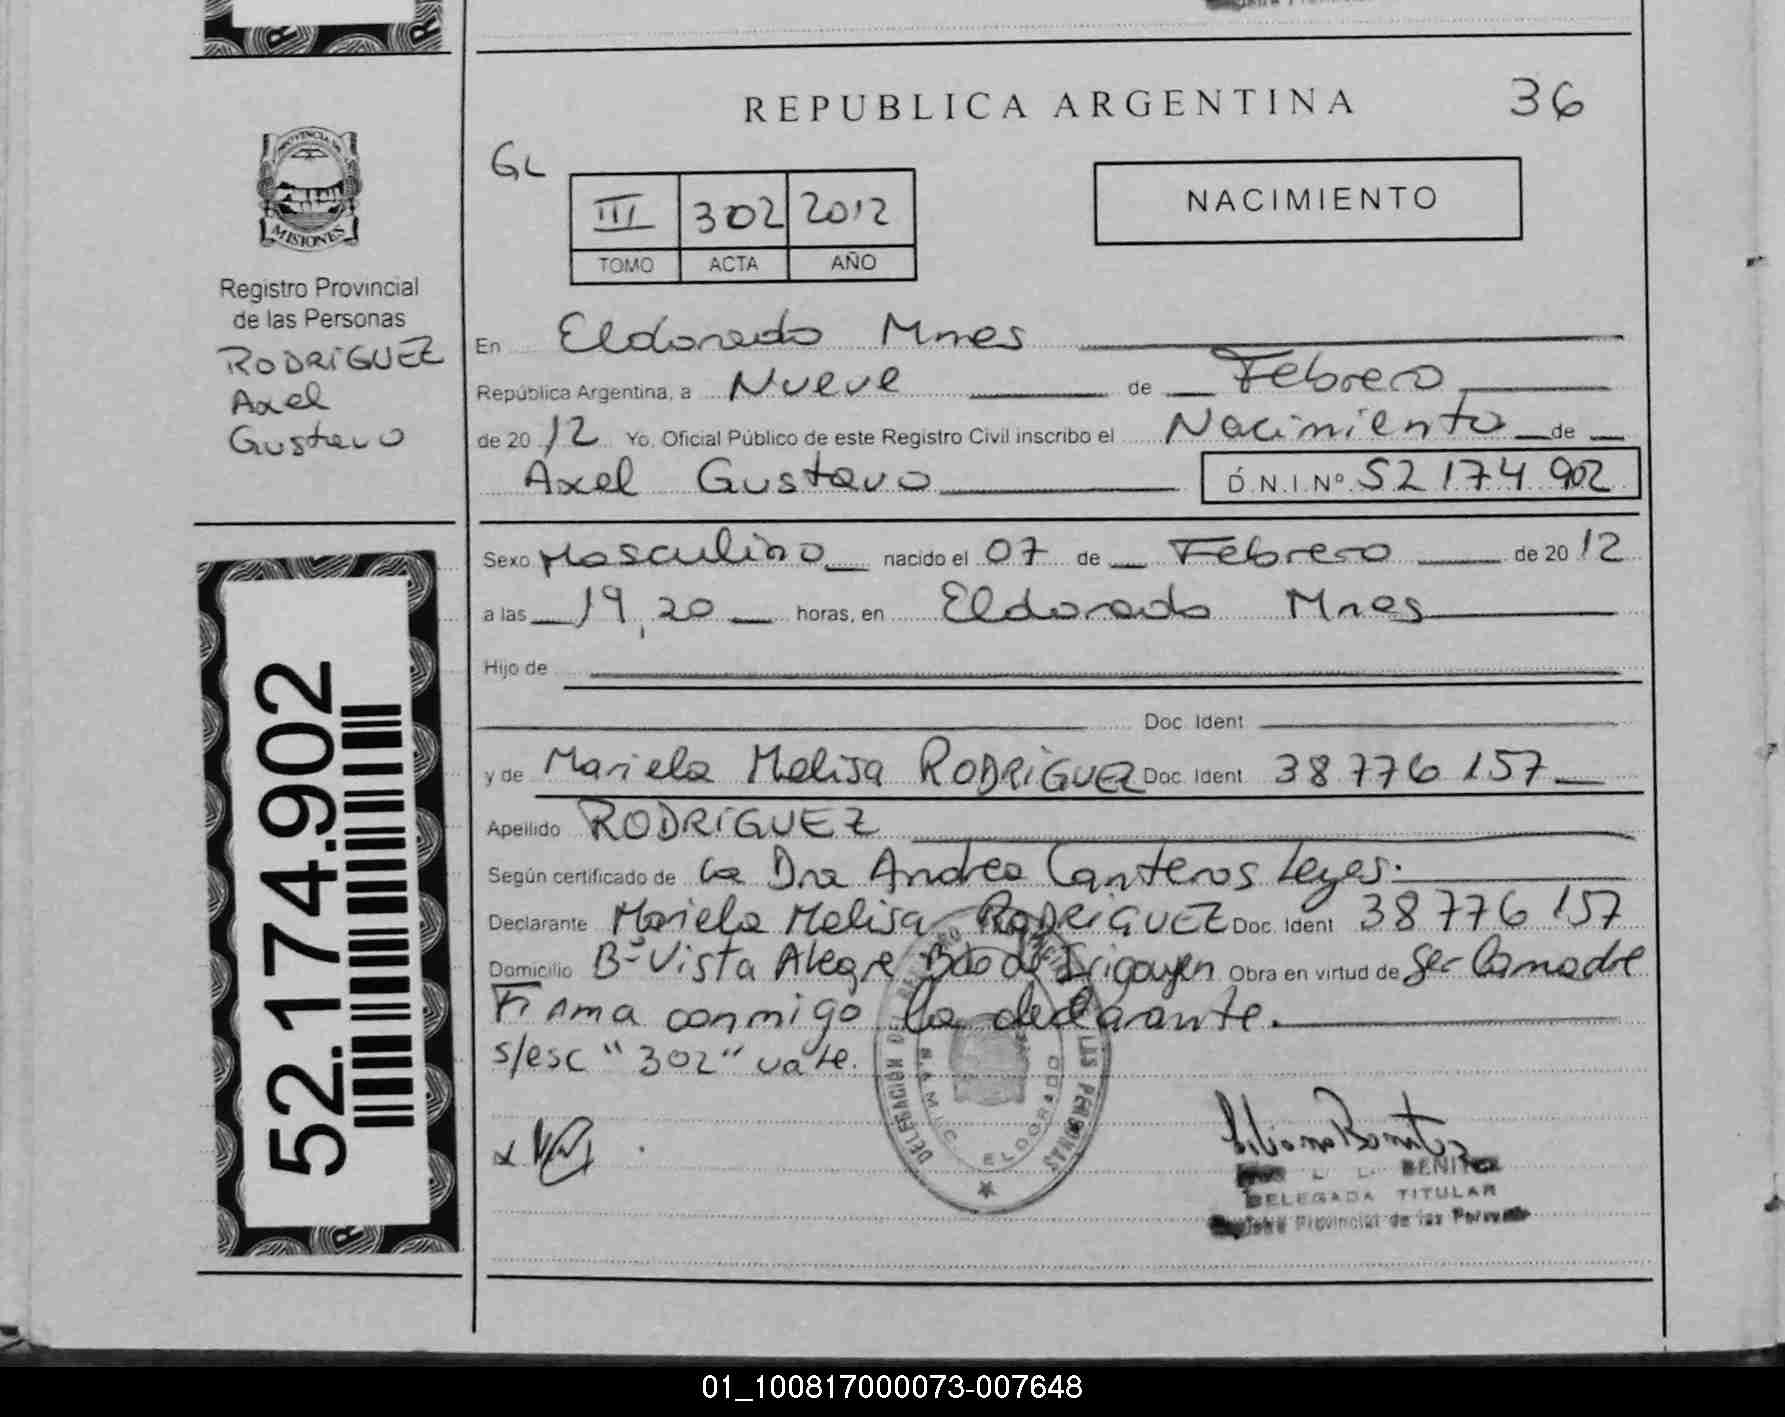 REPUBLICA ARGENTINA
36
PROVINCIA DE
MISIONES
Registro Provincial
de las Personas
RODRIGUEZ
Axel
Gustavo
GL
III 302 2012
TOMO ACTA AÑO
NACIMIENTO
En Eldorado Mnes
República Argentina, a Nueve de Febrero
de 20 12 Yo, Oficial Público de este Registro Civil inscribo el Nacimiento de
Axel Gustavo D.N.I.Nº 52 174 902
Sexo Masculino nacido el 07 de Febrero de 20 12
a las 19,20 horas, en Eldorado Mnes
Hijo de
Doc. Ident
y de Mariela Melisa RODRIGUEZ Doc. Ident 38 776 157
Apellido RODRIGUEZ
Según certificado de la Dra Andrea Canteros Leyes.
Declarante Mariela Melisa RODRIGUEZ Doc. Ident 38 776 157
Domicilio Bº Vista Alegre Bdo de Irigoyen Obra en virtud de Ser la madre
Firma conmigo la declarante.
s/esc "302" vale.
52.174.902
DELEGACION
LAS PERSONAS
ELDORADO
BENITEZ
DELEGADA TITULAR
Registro Provincial de las Personas
01_100817000073-007648